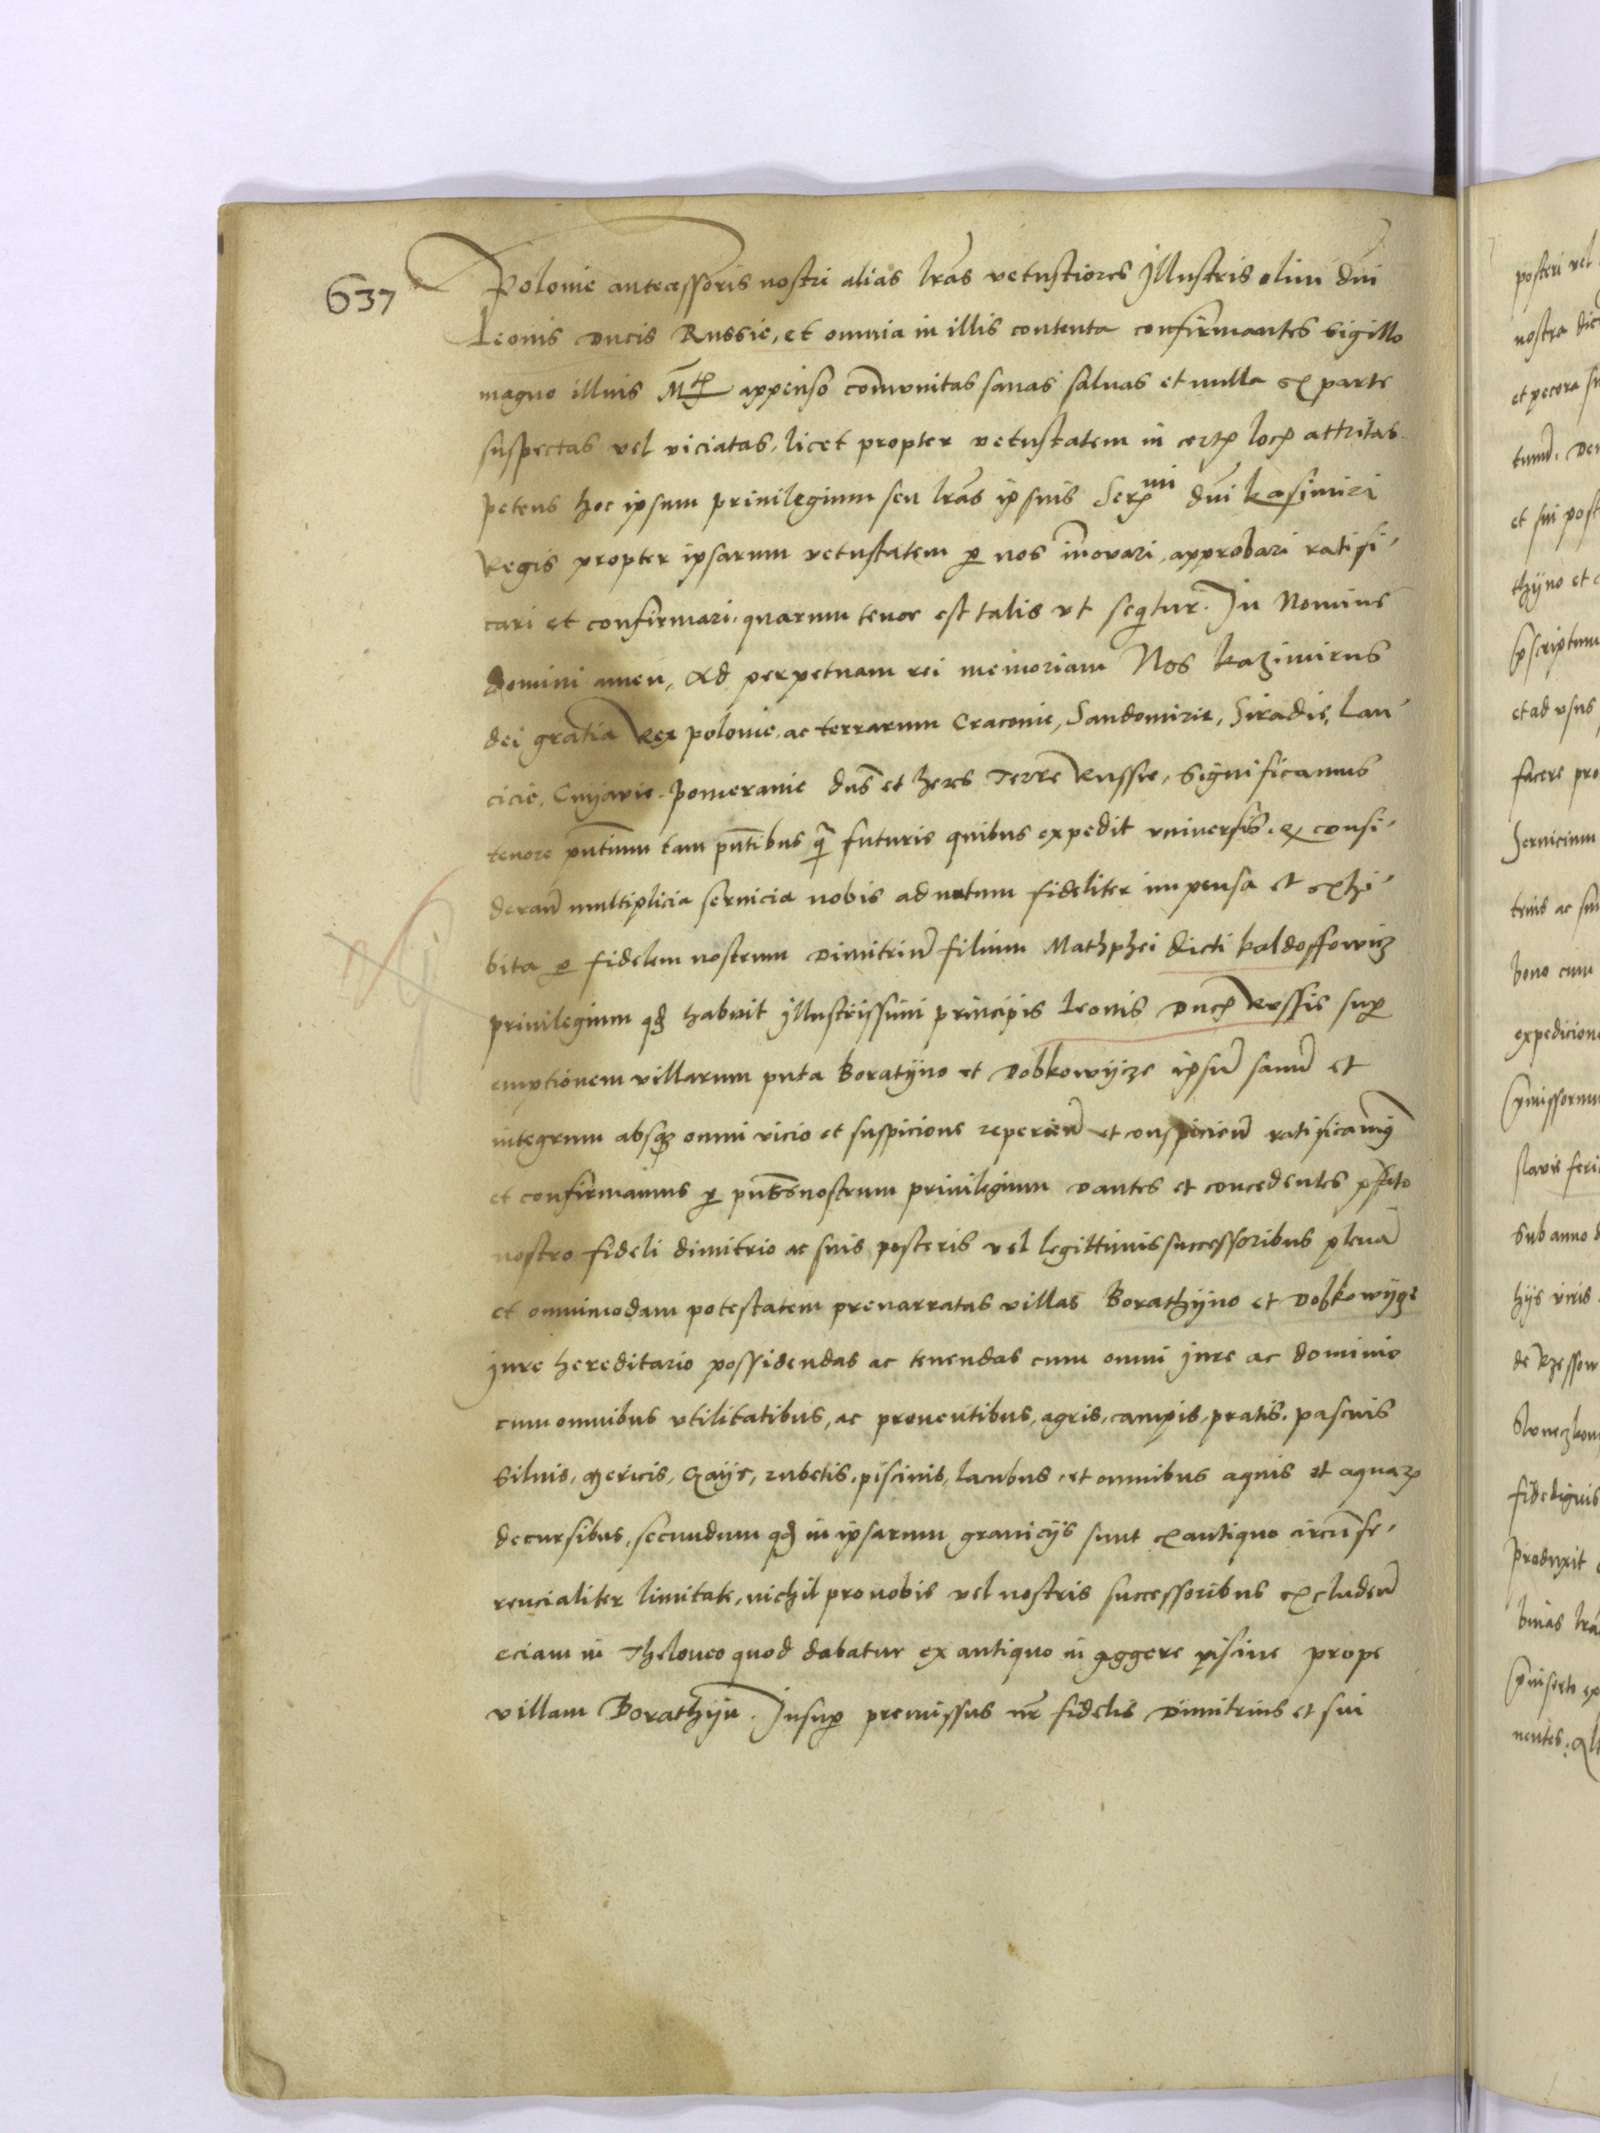 637
Polonie antecessoris nostri alias lras vetustiores Jllustris olim dni
Leonis Ducis Russie, et omnia in illis contenta confirmantes sigillo
magno illius appenso comunitas sanas saluas et nulla ex parte
suspectas vel viciatas, licet propter vetustatem in cert locis attritas
petens hoc ipsum priuilegium seu lras ipsius Ser mi dni Kasimiri
Regis propter ipsarum vetustatem p nos inovari, approbari ratifi-
cari et confirmari. quarum tenor est talis vt seqtur. In Nomine
domini amen, Ad perpetuam rei memoriam Nos Kazimirus
dei gratia Rex polonie, ac terrarum Cracouie, Sandomirie, Siradie, Lan-
cicie, Cuyavie. Pomeranie dns et heres Terre Russie, significamus
tenore pntium tam pntibus q futuris quibus expedit vniuersis, ex consi-
deran multiplicia seruicia nobis ad votum fideliter impensa et exhi-
bita p fidelem nostrum Dimitriu filium Mathphei dicti Kaldoffowicz
priuilegium qd habuit Jllustrissimi principis Leonis Ducis Russie sup
emptionem villarum puta Boratyno et Dobkowycze ipsu sanu et
integrum absq omni vicio et suspicione reperien et conspicien ratificamq
et confirmamus p pntes nostrum priuilegium Dantes et concedentes pfato
nostro fideli dimitrio ac suis posteris vel legittimis successoribus plena
et omnimodam potestatem prenarratas villas Borathyno et Dobkowycze
Jure hereditario possidendas ac tenendas cum omni Jure ac dominio
cum omnibus vtilitatibus, ac prouentibus, agris, campis, pratis, pascuis
siluis, mericis, Gayis, rubetis, piscinis, lacubus et omnibus aquis et aquar
decursibus, secundum qd in ipsarum granicijs sunt ex antiquo circumfe-
rencialiter limitate, nichil pro nobis vel nostris successoribus excluden
eciam in Theloneo quod dabatur ex antiquo in aggere piscine prope
villam Borathyn. Insup premissus nr fidelis Dimitrius et sui